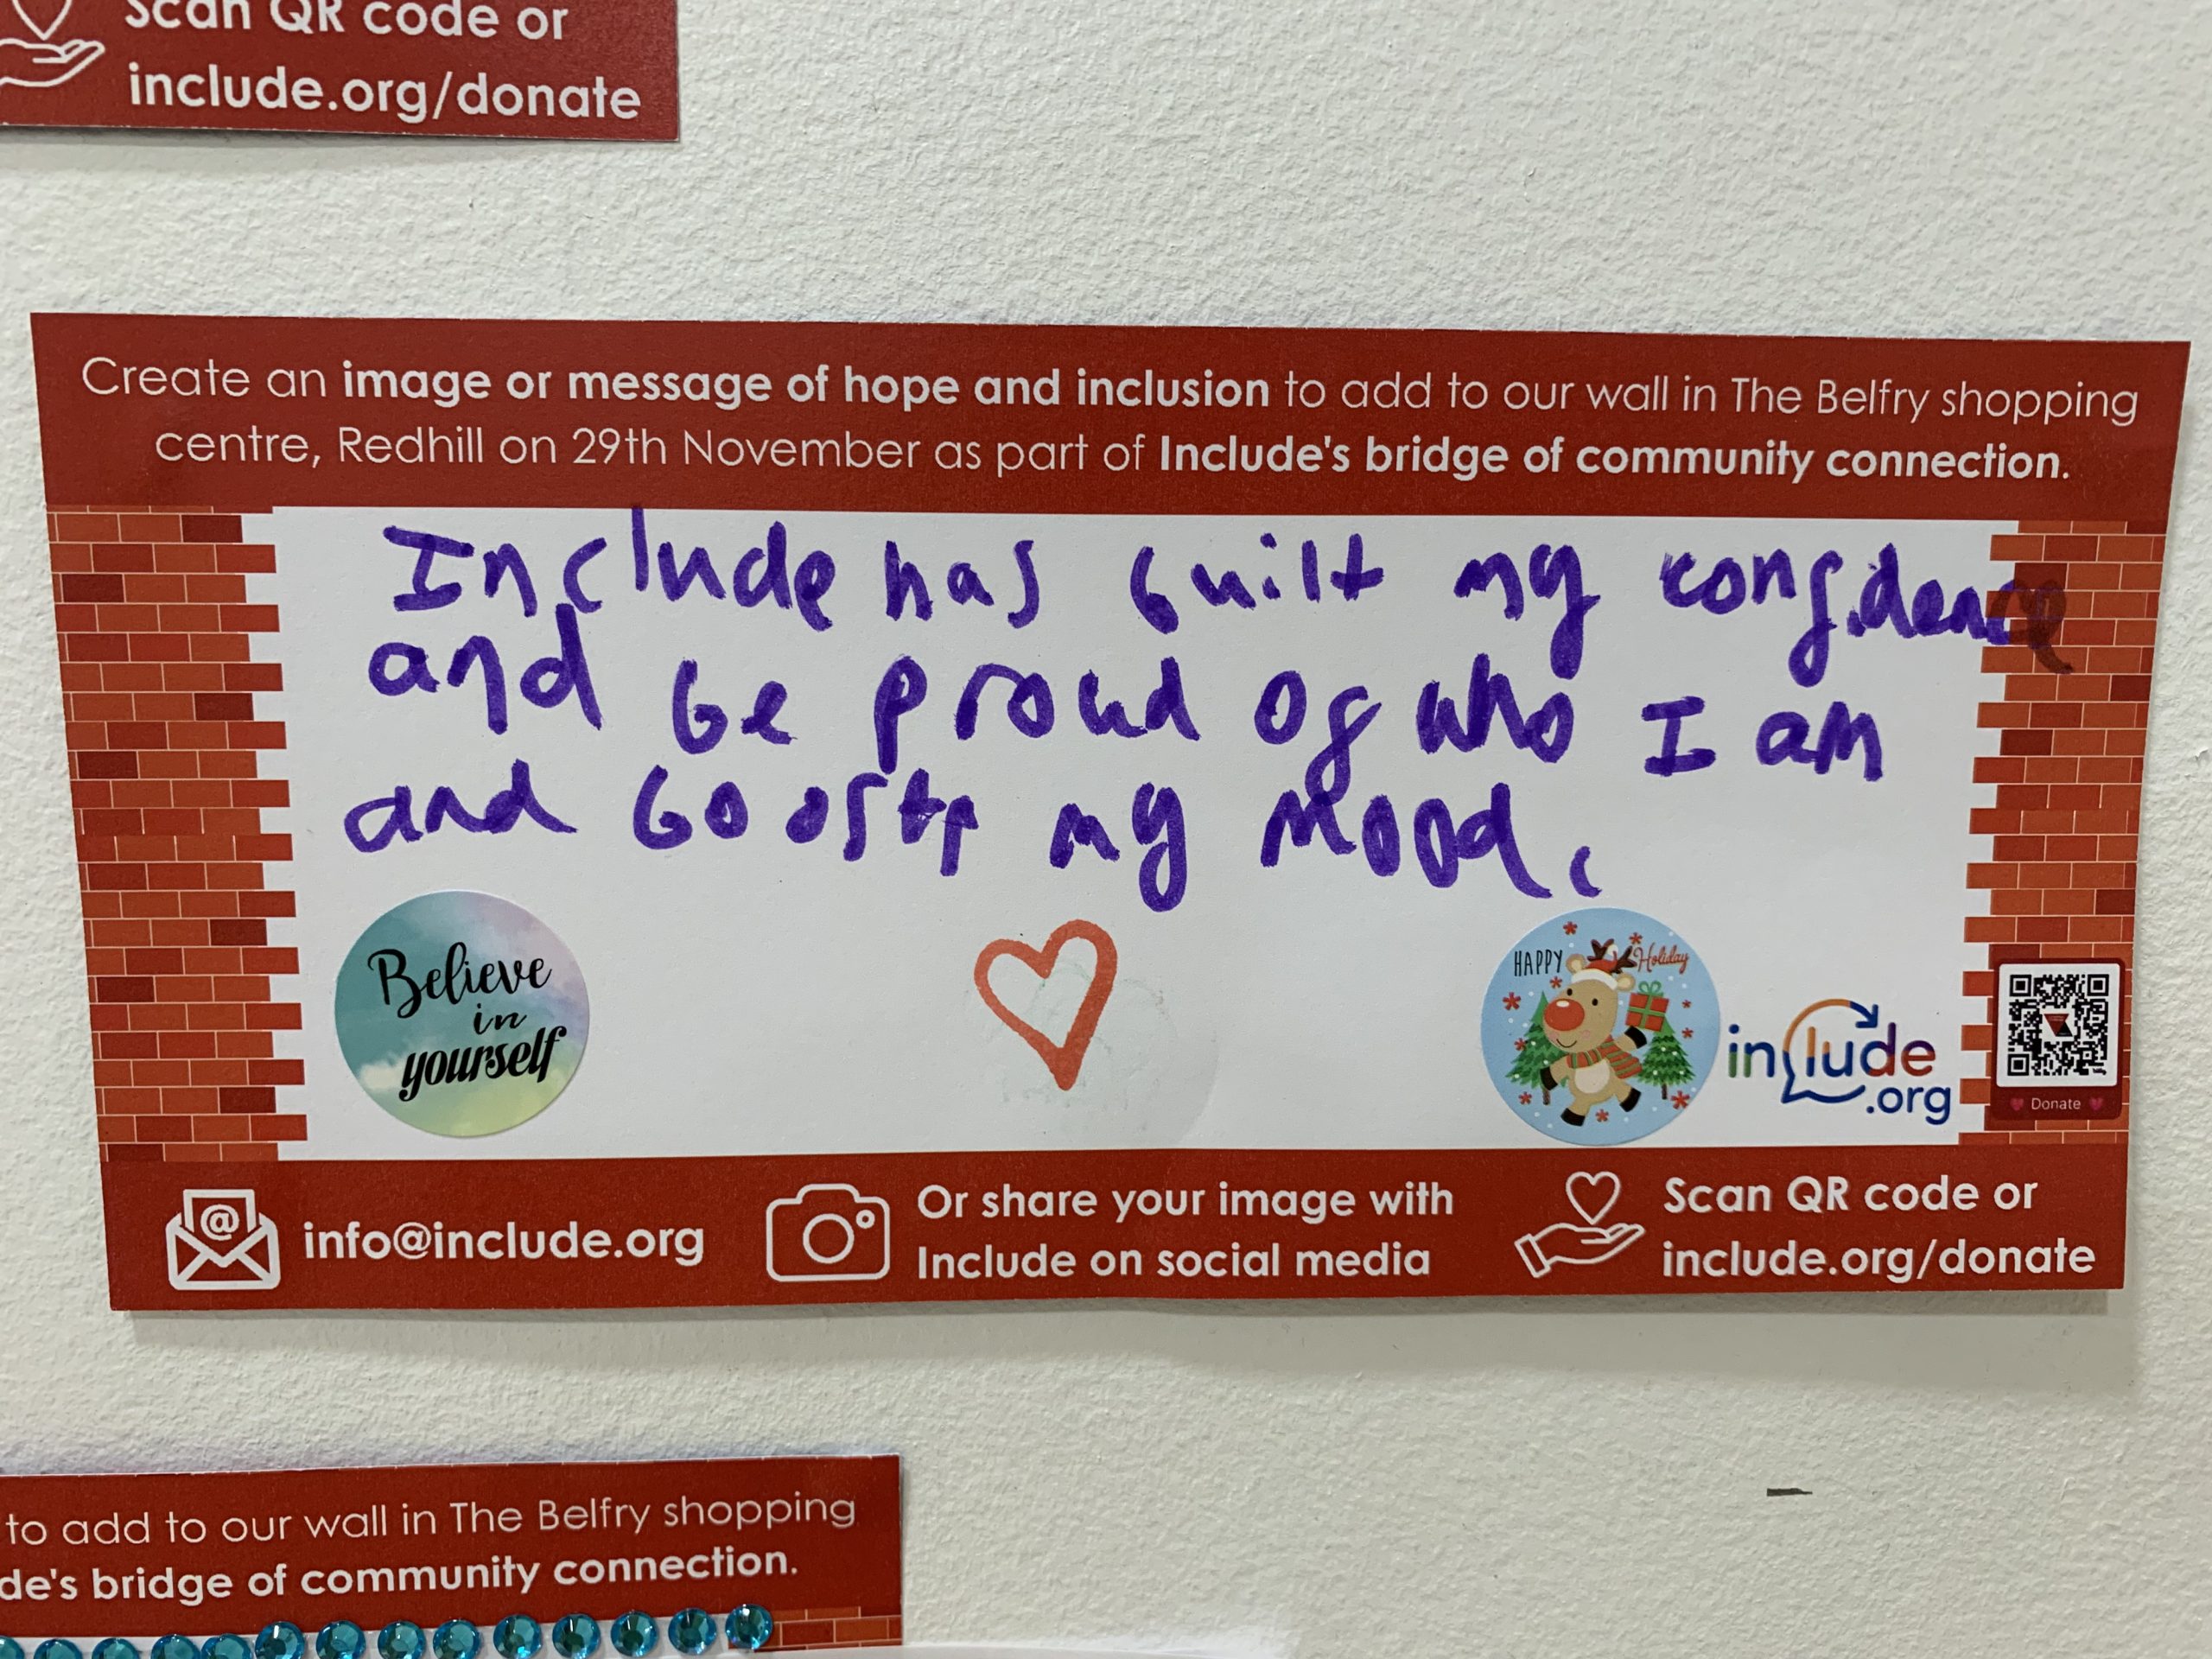 Scan QR code or
include.org/donate
Create an image or message of hope and inclusion to add to our wall in The Belfry shopping
centre, Redhill on 29th November as part of Include's bridge of community connection.
Include has built my confidence
and be proud of who I am
and boosts my mood.
Believe
in
yourself
HAPPY Holiday
include
.org
Donate
info@include.org
Or share your image with
Include on social media
Scan QR code or
include.org/donate
to add to our wall in The Belfry shopping
de's bridge of community connection.